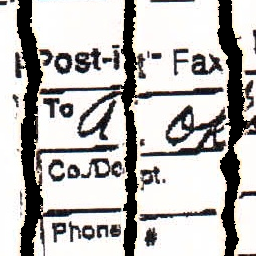 Post-it" Fax
To a
Co./Dept.
Phone #